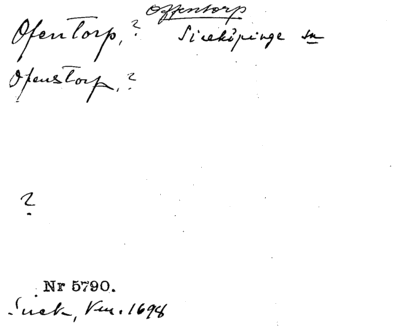 Offentorp
Ofentorp,? Sireköpinge sn
Ofenstorp,?
?
Nr 5790.
Suek, Vm. 1698